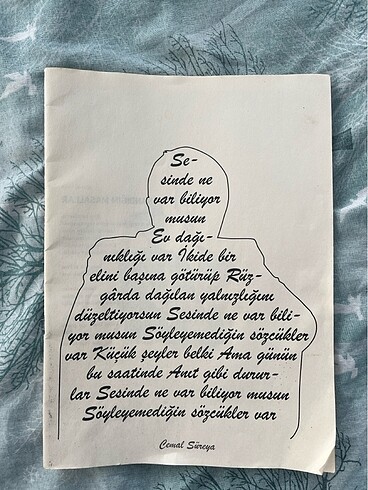 Se-
sinde ne
var biliyor
musun
Ev dağı-
nıklığı var İkide bir
elini başına götürüp Rüz-
gârda dağılan yalnızlığını
düzeltiyorsun Sesinde ne var bili-
yor musun Söyleyemediğin sözcükler
var Küçük şeyler belki Ama günün
bu saatinde Anıt gibi durur-
lar Sesinde ne var biliyor musun
Söyleyemediğin sözcükler var
Cemal Süreya